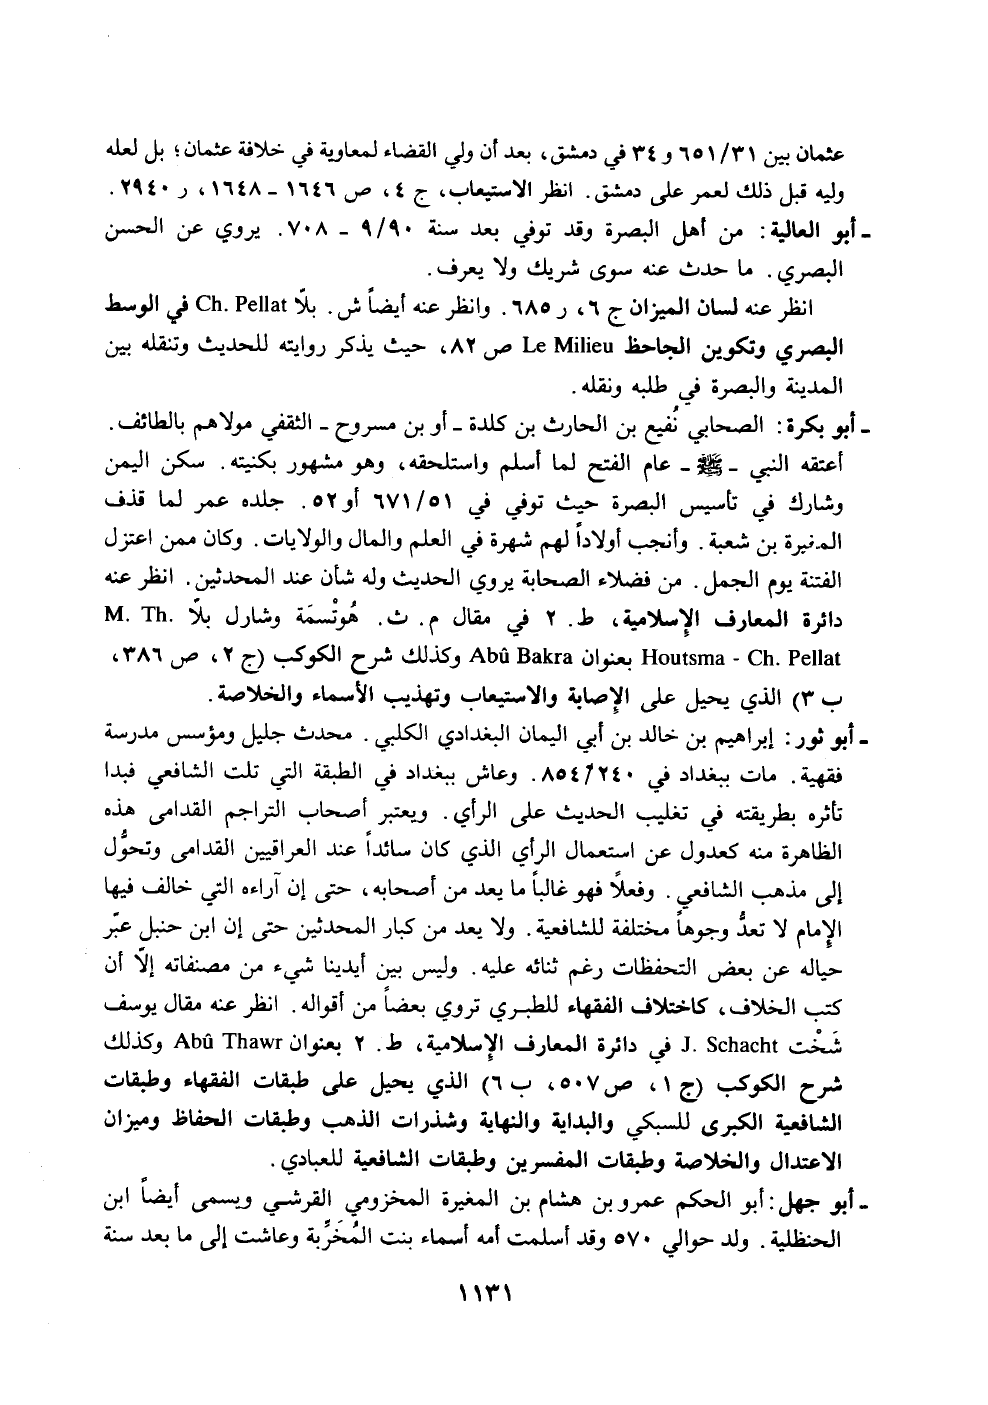 عثمان بين ٦٥١/٣١ و ٣٤ في دمشق، بعد أن ولي القضاء لمعاوية في خلافة عثمان؛ بل لعله
وليه قبل ذلك لعمر على دمشق. انظر الاستيعاب، ج ٤، ص ١٦٤٦ ـ ١٦٤٨، ر ٢٩٤٠.
ـ أبو العالية: من أهل البصرة وقد توفي بعد سنة ٩/٩٠ ـ ٧٠٨. يروي عن الحسن
البصري. ما حدث عنه سوى شريك ولا يعرف.
انظر عنه لسان الميزان ج ٦، ر ٦٨٥. وانظر عنه أيضاً ش. بلّا Ch. Pellat في الوسط
البصري وتكوين الجاحظ Le Milieu ص ٨٢، حيث يذكر روايته للحديث وتنقله بين
المدينة والبصرة في طلبه ونقله.
ـ أبو بكرة: الصحابي نُفيع بن الحارث بن كلدة ـ أو بن مسروح ـ الثقفي مولاهم بالطائف.
أعتقه النبي ـ ﷺ ـ عام الفتح لما أسلم واستلحقه، وهو مشهور بكنيته. سكن اليمن
وشارك في تأسيس البصرة حيث توفي في ٦٧١/٥١ أو ٥٢. جلده عمر لما قذف
المغيرة بن شعبة. وأنجب أولاداً لهم شهرة في العلم والمال والولايات. وكان ممن اعتزل
الفتنة يوم الجمل. من فضلاء الصحابة يروي الحديث وله شأن عند المحدثين. انظر عنه
دائرة المعارف الإسلامية، ط. ٢ في مقال م. ث. هُوتْسمَة وشارل بلّا M. Th.
Houtsma - Ch. Pellat بعنوان Abû Bakra وكذلك شرح الكوكب (ج ٢، ص ٣٨٦،
ب ٣) الذي يحيل على الإصابة والاستيعاب وتهذيب الأسماء والخلاصة.
ـ أبو ثور: إبراهيم بن خالد بن أبي اليمان البغدادي الكلبي. محدث جليل ومؤسس مدرسة
فقهية. مات ببغداد في ٨٥٤/٢٤٠. وعاش ببغداد في الطبقة التي تلت الشافعي فبدا
تأثره بطريقته في تغليب الحديث على الرأي. ويعتبر أصحاب التراجم القدامى هذه
الظاهرة منه كعدول عن استعمال الرأي الذي كان سائداً عند العراقيين القدامى وتحوُّل
إلى مذهب الشافعي. وفعلاً فهو غالباً ما يعد من أصحابه، حتى إن آراءه التي خالف فيها
الإمام لا تعدُّ وجوهاً مختلفة للشافعية. ولا يعد من كبار المحدثين حتى إن ابن حنبل عبّر
حياله عن بعض التحفظات رغم ثنائه عليه. وليس بين أيدينا شيء من مصنفاته إلّا أن
كتب الخلاف، كاختلاف الفقهاء للطبري تروي بعضاً من أقواله. انظر عنه مقال يوسف
شَخْت J. Schacht في دائرة المعارف الإسلامية، ط. ٢ بعنوان Abû Thawr وكذلك
شرح الكوكب (ج ١، ص ٥٠٧، ب ٦) الذي يحيل على طبقات الفقهاء وطبقات
الشافعية الكبرى للسبكي والبداية والنهاية وشذرات الذهب وطبقات الحفاظ وميزان
الاعتدال والخلاصة وطبقات المفسرين وطبقات الشافعية للعبادي.
ـ أبو جهل: أبو الحكم عمرو بن هشام بن المغيرة المخزومي القرشي ويسمى أيضاً ابن
الحنظلية. ولد حوالي ٥٧٠ وقد أسلمت أمه أسماء بنت المُخَرِّبة وعاشت إلى ما بعد سنة
١١٣١